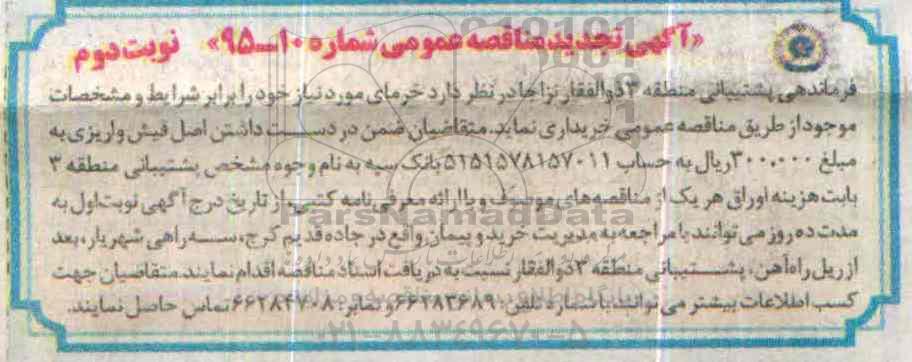 «آگهی تجدید مناقصه عمومی شماره ۱۰-۹۵» نوبت دوم
فرماندهی پشتیبانی منطقه ۳ ذوالفقار نزاجا در نظر دارد خرمای مورد نیاز خود را برابر شرایط و مشخصات
موجود از طریق مناقصه عمومی خریداری نماید. متقاضیان ضمن در دست داشتن اصل فیش واریزی به
مبلغ ۳۰۰,۰۰۰ ریال به حساب ۵۱۵۱۵۷۸۱۵۷۰۱۱ بانک سپه به نام وجوه مشخص پشتیبانی منطقه ۳
بابت هزینه اوراق هر یک از مناقصه‌های موصوف و با ارائه معرفی‌نامه کتبی، از تاریخ درج آگهی نوبت اول به
ParsNamadData
مدت ده روز می توانند با مراجعه به مدیریت خرید و پیمان واقع در جاده قدیم کرج، سه راهی شهریار، بعد
از ریل راه‌آهن، پشتیبانی منطقه ۳ ذوالفقار نسبت به دریافت اسناد مناقصه اقدام نمایند متقاضیان جهت
کسب اطلاعات بیشتر می توانند با شماره تلفن: ۶۶۲۸۳۶۸۹ و نمابر: ۶۶۲۸۴۷۰۸ تماس حاصل نمایند.
۰۲۱-۸۸۳۴۹۶۷۰-۵